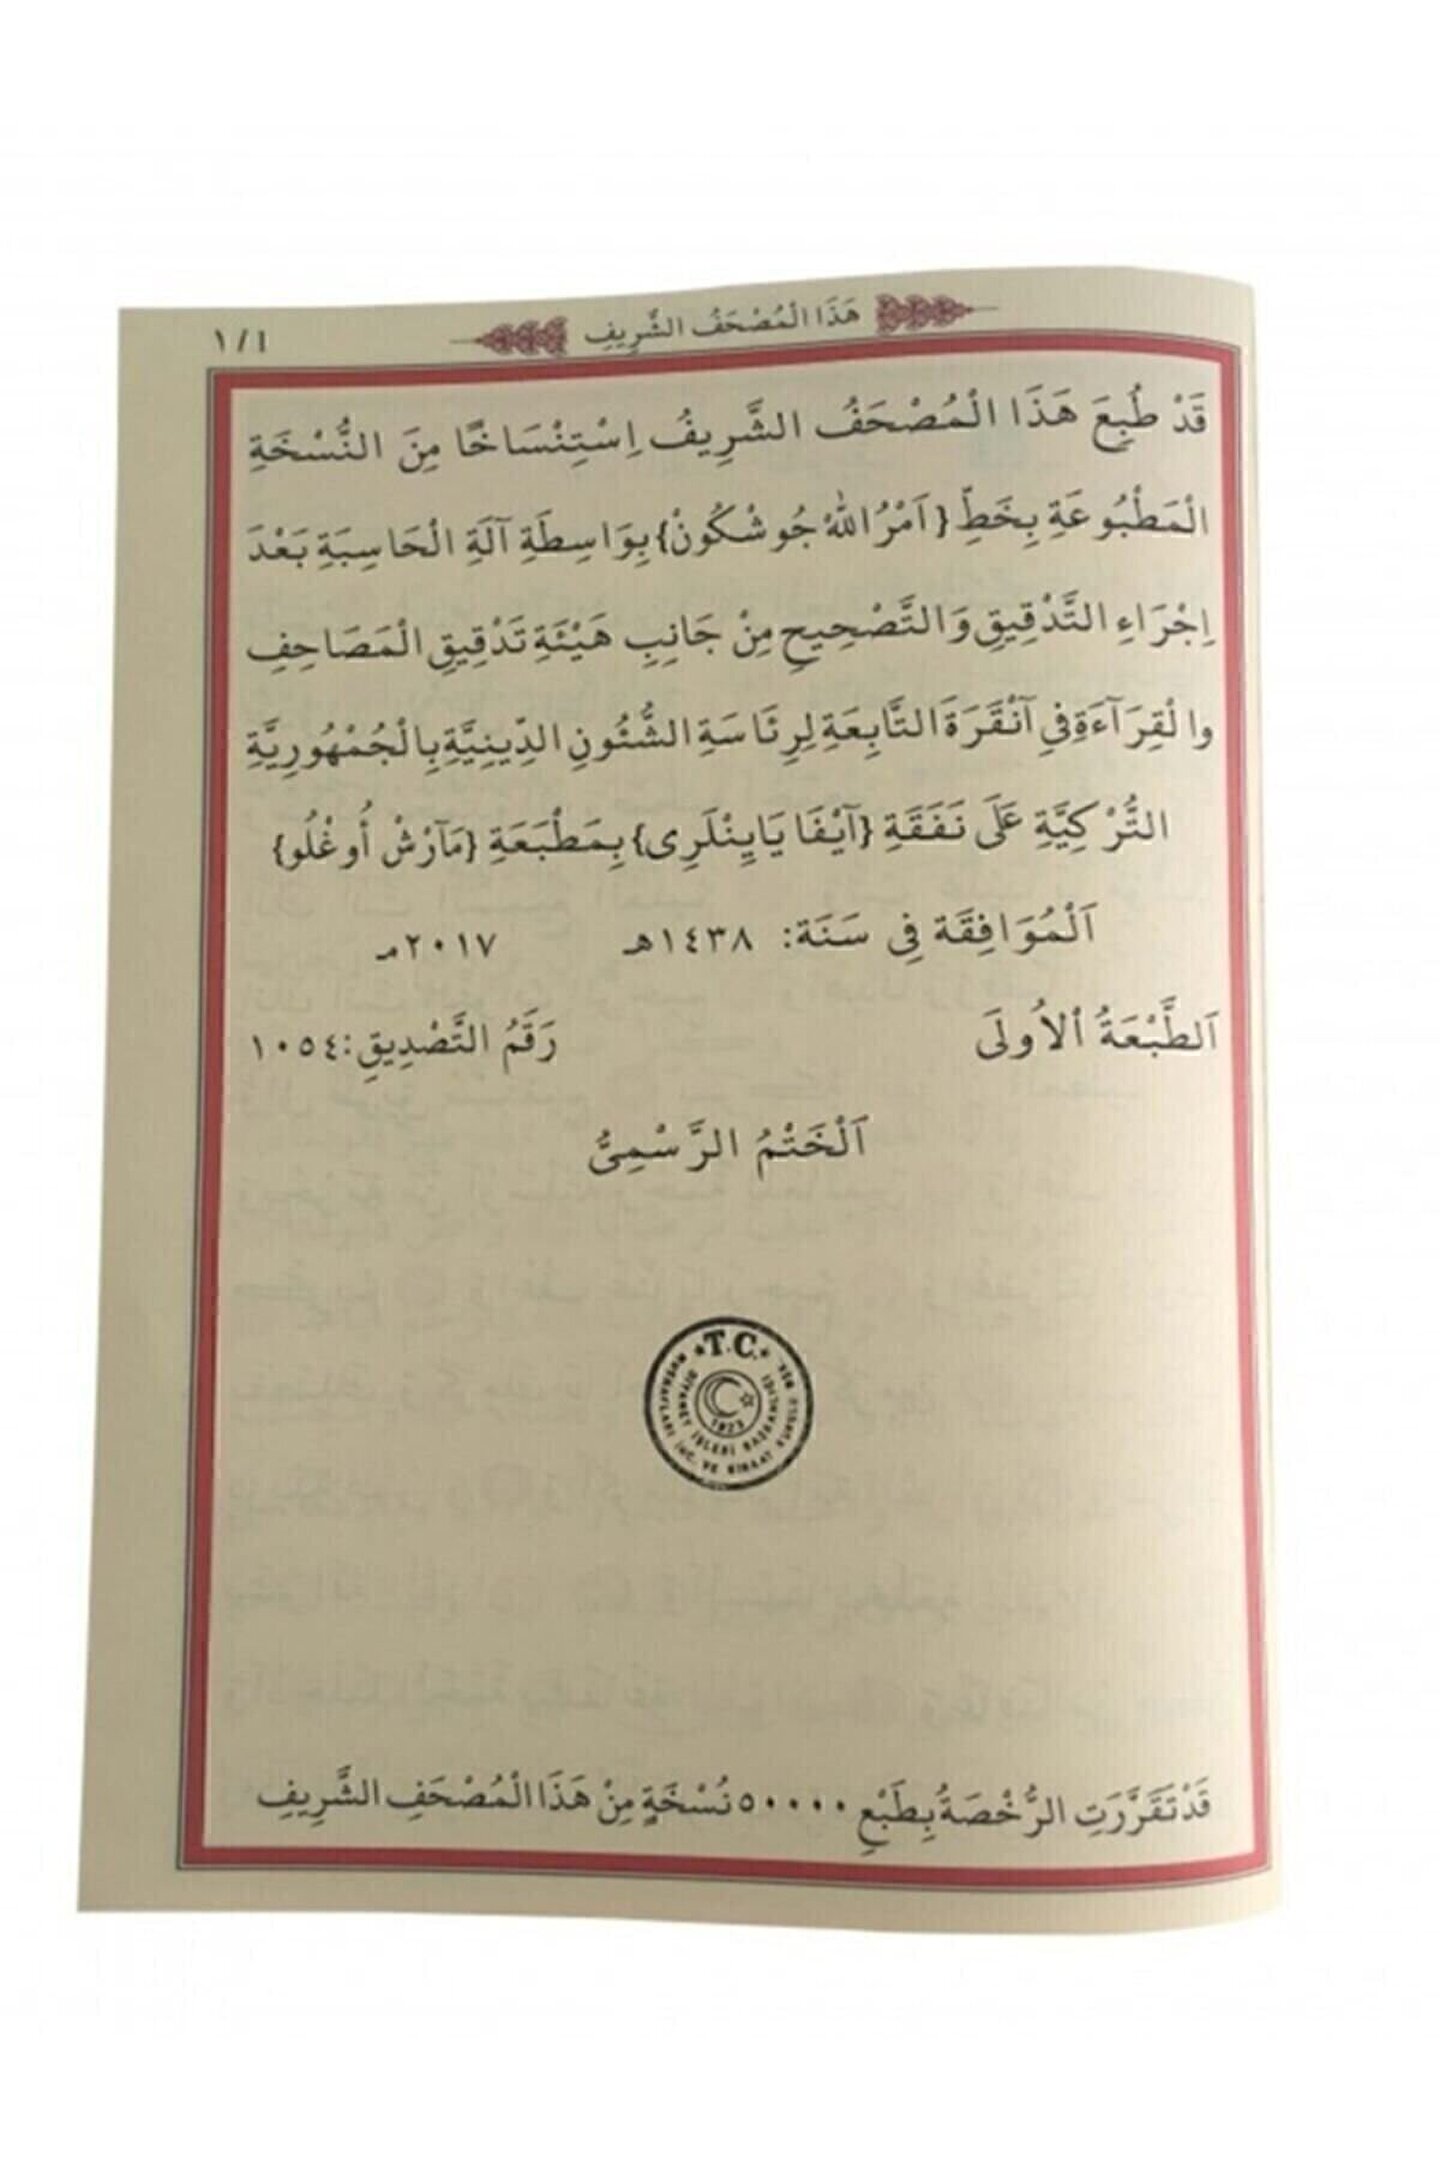 هَذَا الْمُصْحَفُ الشَّرِيفِ
١/١
قَدْ طُبِعَ هَذَا الْمُصْحَفُ الشَّرِيفُ اِسْتِنْسَاخًا مِنَ النُّسْخَةِ
الْمَطْبُوعَةِ بِخَطِّ {اَمْرُ اللّٰهْ جُوشْكُونْ} بِوَاسِطَةِ آلَةِ الْحَاسِبَةِ بَعْدَ
اِجْرَاءِ التَّدْقِيقِ وَالتَّصْحِيحِ مِنْ جَانِبِ هَيْئَةِ تَدْقِيقِ الْمَصَاحِفِ
والْقِرَآءَةِ فِي آنْقَرَةَ التَّابِعَةِ لِرِئَاسَةِ الشُّئُونِ الدِّينِيَّةِ بِالْجُمْهُورِيَّةِ
التُّرْكِيَّةِ عَلَى نَفَقَةِ {آيْفَا يَايِنْلَرِى} بِمَطْبَعَةِ {مَآرْشْ أُوغْلُو}
اَلْمُوَافِقَة فِى سَنَة: ١٤٣٨هـ ٢٠١٧مـ
اَلطَّبْعَةُ الْاُولَى رَقَمُ التَّصْدِيقِ: ١٠٥٤
اَلْخَتْمُ الرَّسْمِىُّ
T.C.
MUSHAFLARI İNC. VE KIRAAT KURULU
DİYANET İŞLERİ BAŞKANLIĞI
1923
قَدْ تَقَرَّرَتِ الرُّخْصَةُ بِطَبْعِ ٥٠٠٠٠ نُسْخَةٍ مِنْ هَذَا الْمُصْحَفِ الشَّرِيفِ